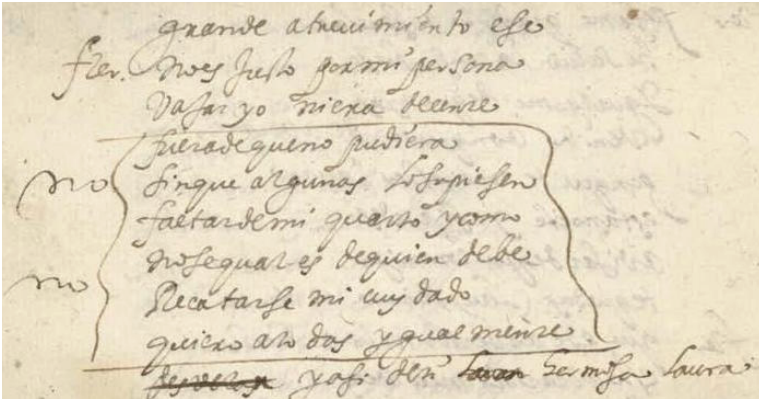 grande atreuimiento ese
fler. no es justo por mi persona
vajar yo ni era decente
fuera de que no pudiera
no sin que algunas lo supiesen
faltar de mi quarto y como
no se qual es de quien debe
no Recatarse mi cuydado
quiero a todas ygualmente
y asi hermosa Laura